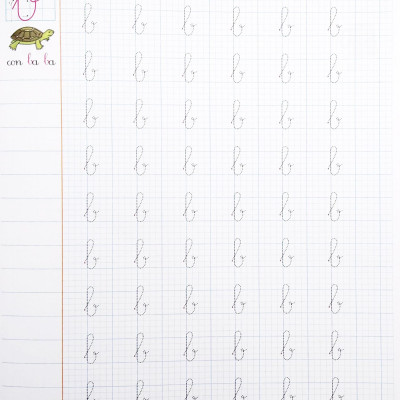 b
con ba ba
b b b b b b
b b b b b b
b b b b b b
b b b b b b
b b b b b b
b b b b b b
b b b b b b
b b b b b b
b b b b b b